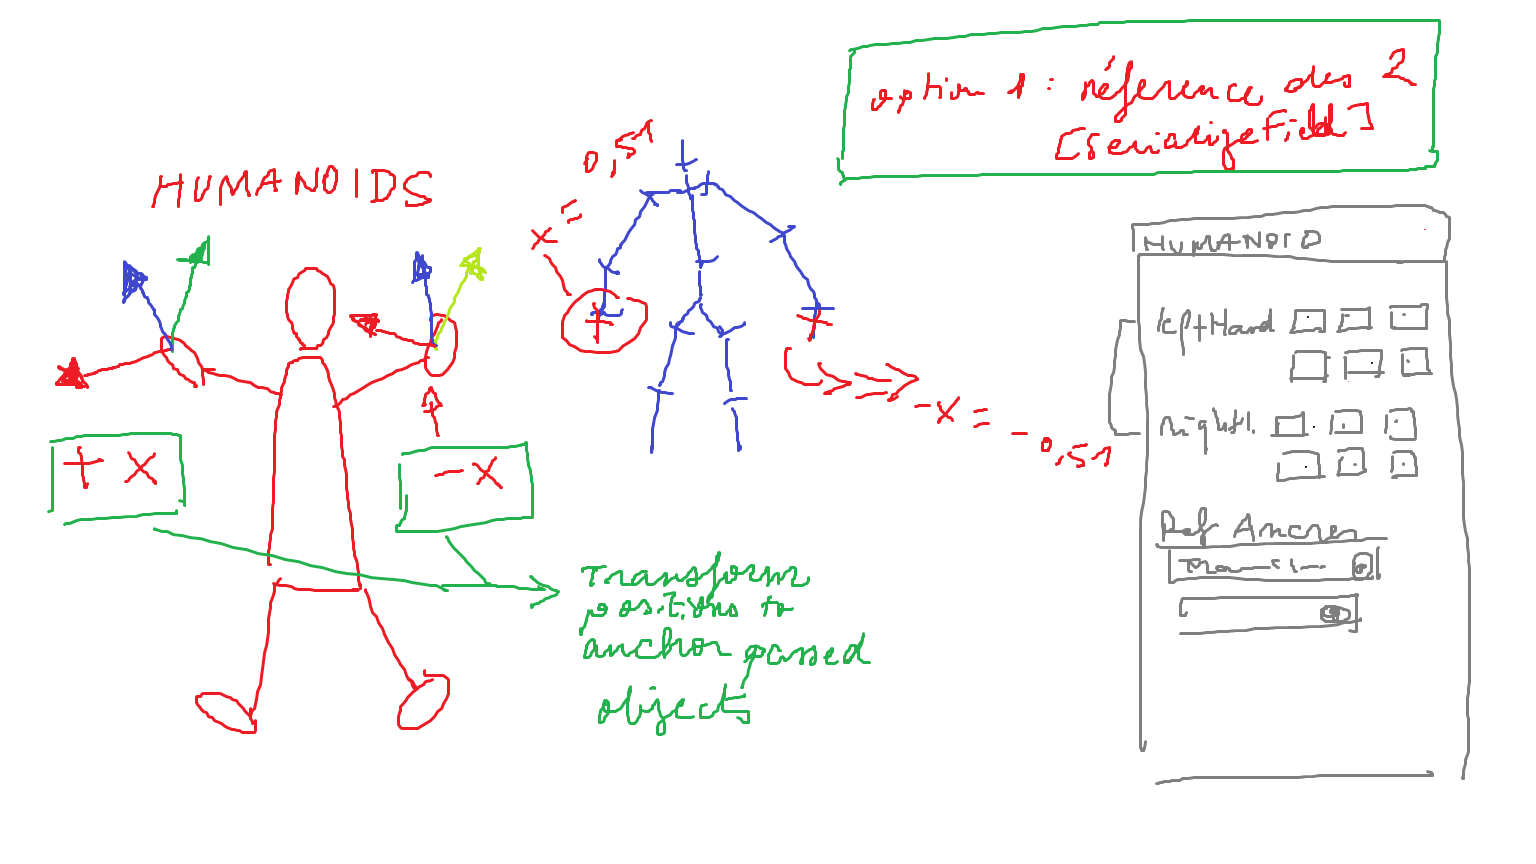 option 1 : réference des 2
[SerializeField]
HUMANOIDS
x = 0,51
+ x
- x
- x = - 0,51
Transform
positions to
anchor passed
objects
HUMANOID
leftHand
rightH.
Ref Ancres